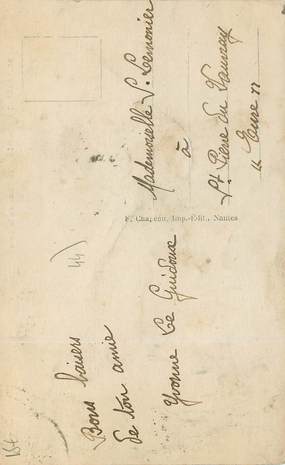 Bons baisers
de ton amie
Yvonne Le Guidoux
Mademoiselle S. Lemonier
à
St Pierre du Vauvray
"Eure"
F. Chapeau, Imp.-Edit., Nantes
44)